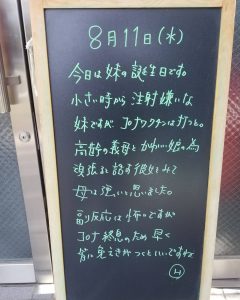 8月11日(水)
今日は妹の誕生日です。
小さい時から注射嫌いな
妹ですが コロナワクチンは打つと。
高齢の義母とかわいい娘の為
頑張ると話す彼女をみて
母は強いと思いました。
副反応は怖いですが
コロナ終息のため 早く
皆に免えきがつくといいですね
H